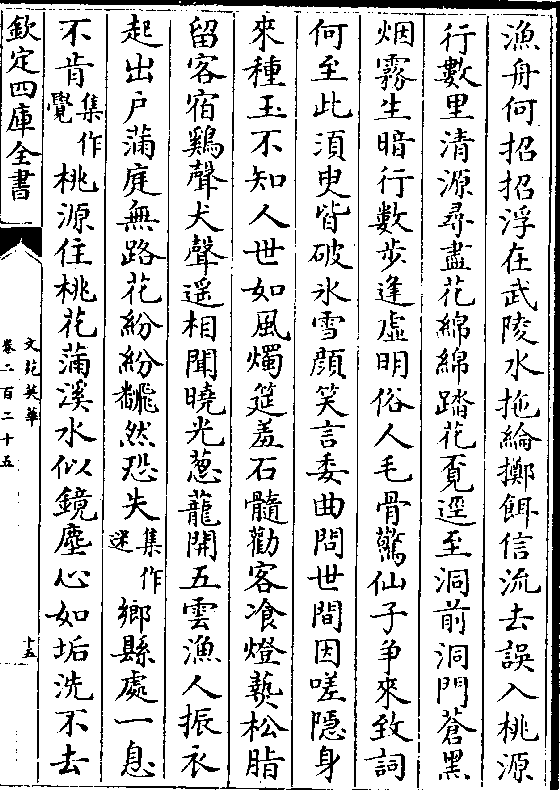 漁舟何招招浮在武陵水拖綸擲餌信流去誤入桃源
行數里清源尋盡花綿綿踏花覓逕至洞前洞門蒼黑
烟霧生暗行數步逢虛明俗人毛骨驚仙子争來致詞
何至此須臾皆破氷雪顔笑言委曲問世間因嗟隠身
來種玉不知人世如風燭筵羞石髓勸客飡燈爇松脂
留客宿鷄聲犬聲遥相聞曉光葱蘢開五雲漁人振衣
起出户滿庭無路花紛紛飜然恐失集作迷鄉縣處一息
不肯集作覺桃源住桃花滿溪水似鏡塵心如垢洗不去
欽定四庫全書
文苑英華
卷二百二十五
十五